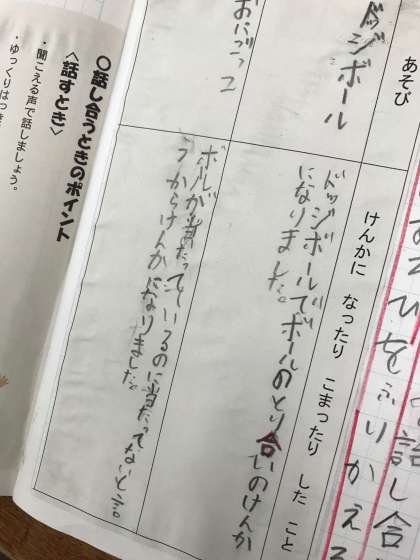 あそびをふりかえる
話し合
あそび
けんかに なったり こまったり した こと
ドッジボール
ドッジボールでボールのとり合いのけんか
になりました。
ボールが当たっているのに当たってないと言
うからけんかになりました。
おにごっこ
〇話し合うときのポイント
〈話すとき〉
・聞こえる声で話しましょう。
・ゆっくりはっき